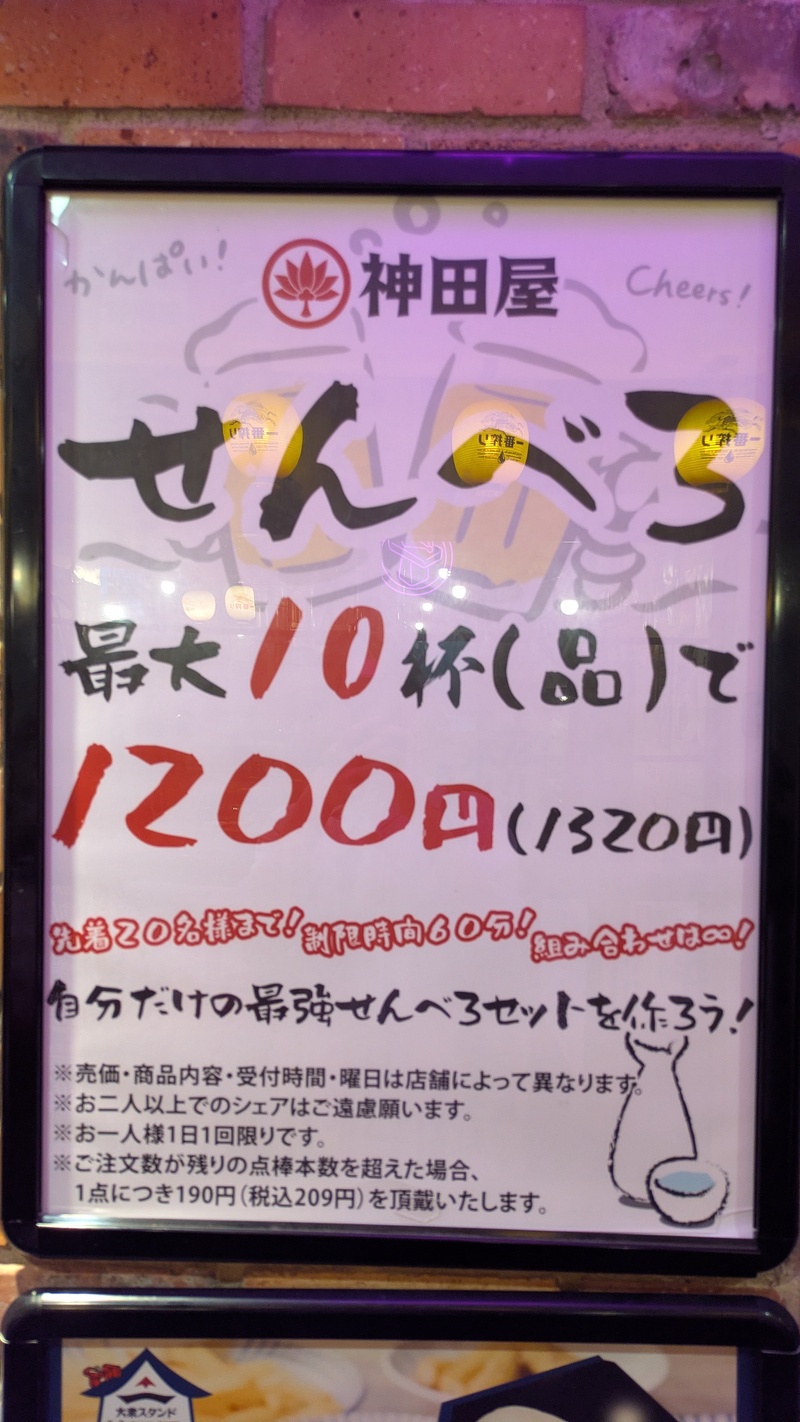 かんぱい!
神田屋
Cheers!
せんべろ
最大10杯(品)で
1200円(1320円)
先着20名様まで!制限時間60分!組み合わせは∞!
自分だけの最強せんべろセットを作ろう!
※売価・商品内容・受付時間・曜日は店舗によって異なります。
※お二人以上でのシェアはご遠慮願います。
※お一人様1日1回限りです。
※ご注文数が残りの点棒本数を超えた場合、
1点につき190円(税込209円)を頂戴いたします。
大衆スタンド